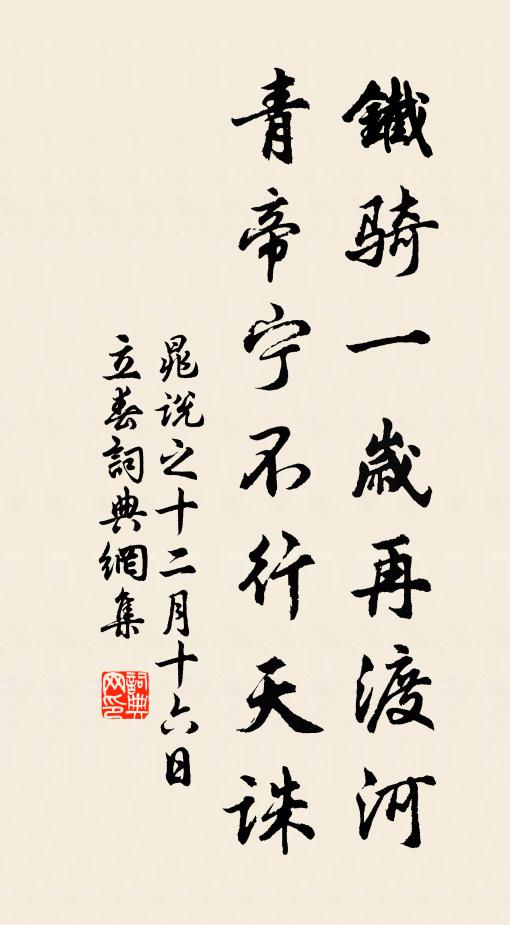 鐵騎一歲再渡河
青帝宁不行天誅
晁説之十二月十六日
立春詞典網集
詞典
网印